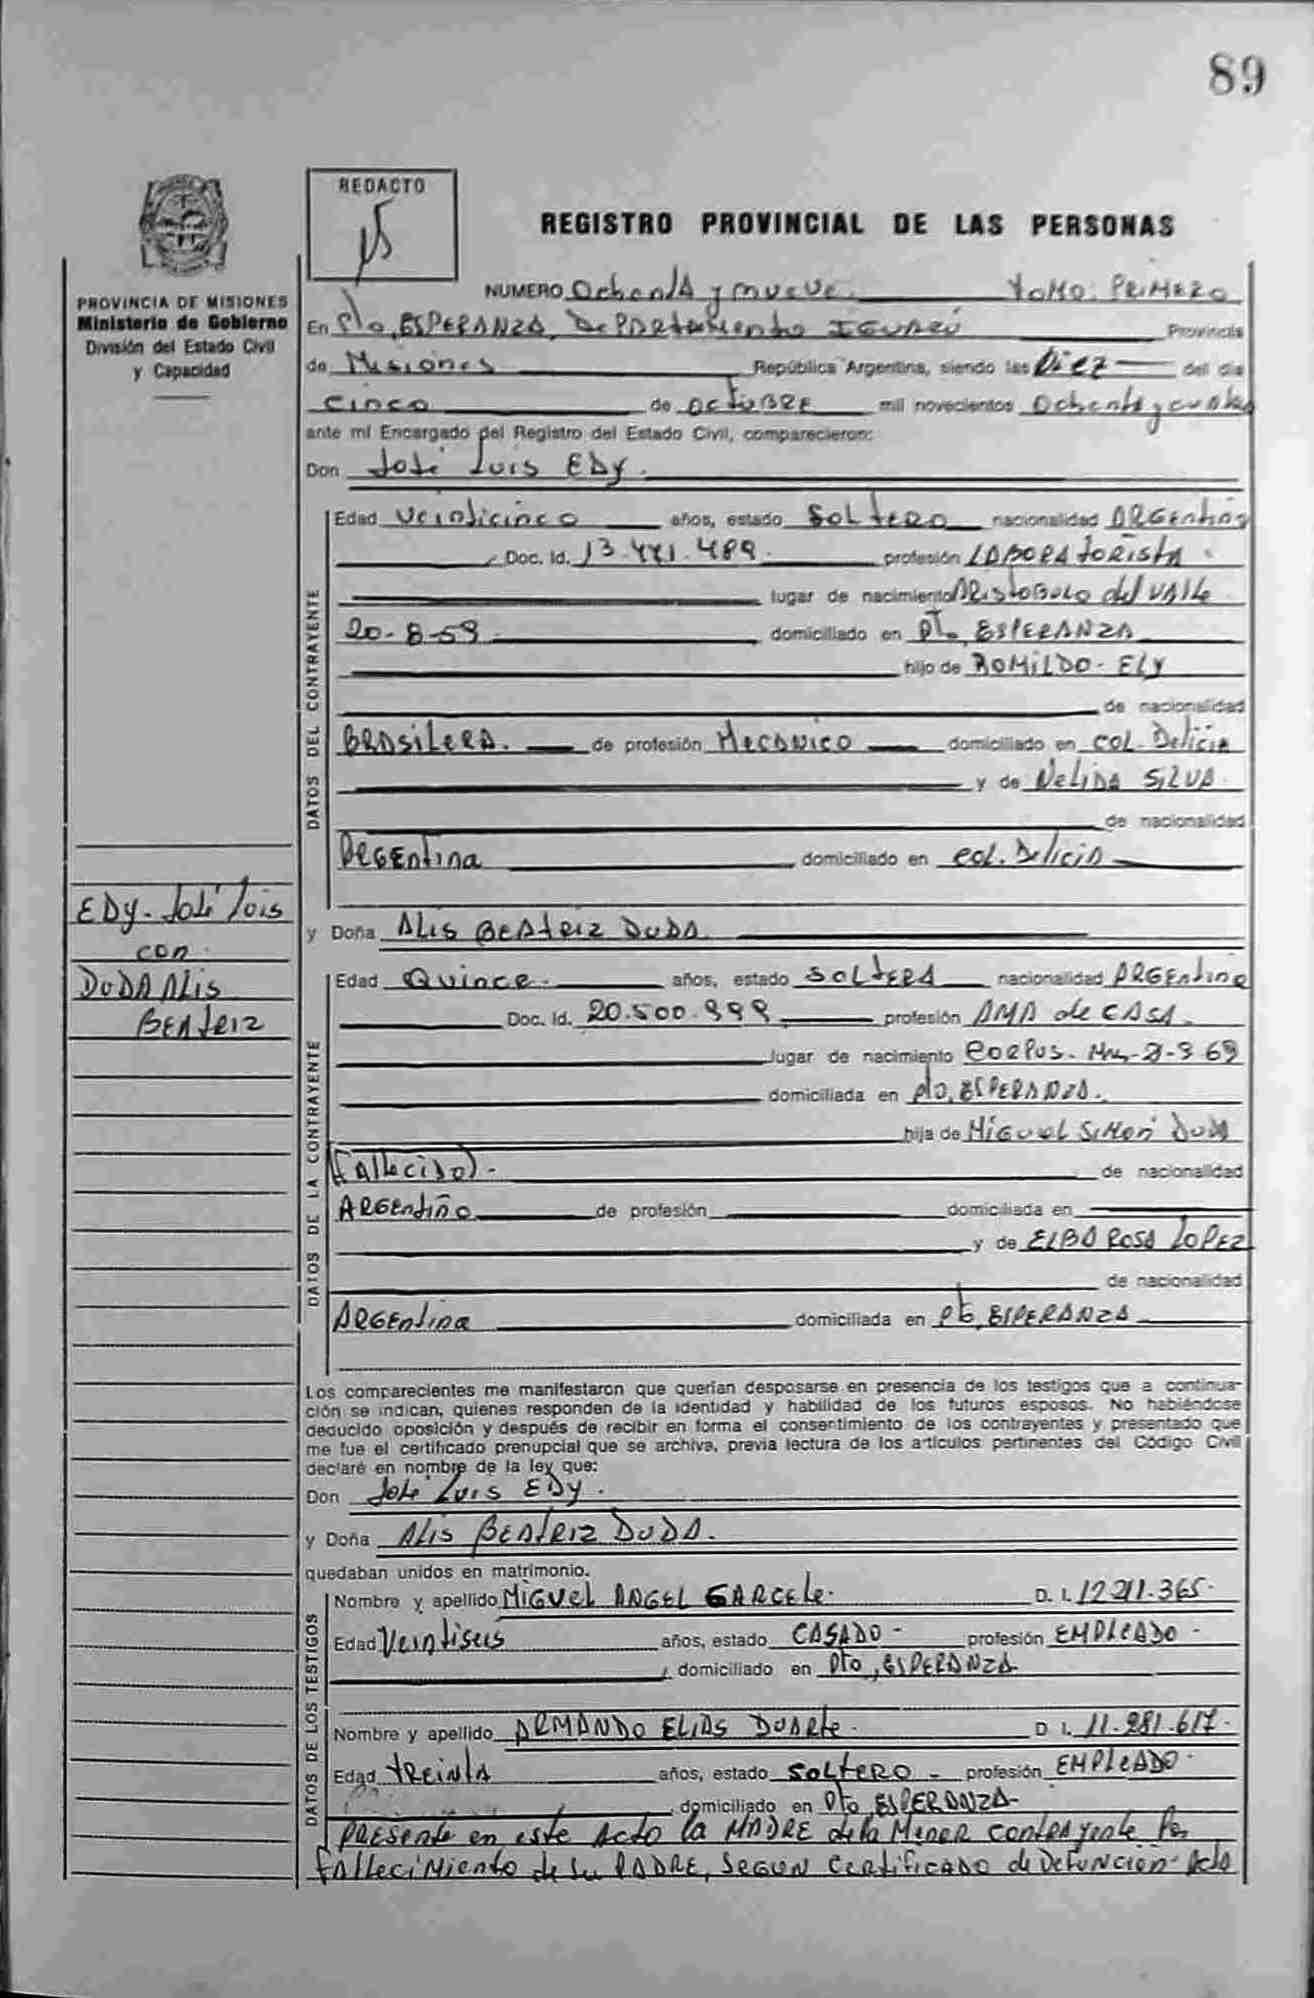 89
REDACTO
REGISTRO PROVINCIAL DE LAS PERSONAS
PROVINCIA DE MISIONES
Ministerio de Gobierno
División del Estado Civil
y Capacidad
NUMERO Ochenta y nueve. TOMO: PRIMERO
En Pto, ESPERANZA, DePARtamento IGUAZÚ Provincia
de Misiones República Argentina, siendo las Diez del día
CINCO de OCTUBRE mil novecientos Ochenta y cuatro
ante mí Encargado del Registro del Estado Civil, comparecieron:
Don José Luis EDy.
DATOS DEL CONTRAYENTE
Edad Veinticinco años, estado SOLTERO nacionalidad ARGEntino
Doc. Id. 13.441.489. profesión LABORATORISTA.
lugar de nacimiento ARISTOBULO del VAlle
20-8-59 domiciliado en PTO. ESPERANZA
hijo de ROMILDO- ELY
de nacionalidad
BRASILERA. de profesión MECANICO domiciliado en COL. Delicia
y de NELIDA SILVA.
de nacionalidad
ARGENtina domiciliado en COL. Delicia
EDy- José Luis
con.
DUDA ALIS
BEAtRIZ
y Doña ALIS BEATRIZ DUDA.
DATOS DE LA CONTRAYENTE
Edad Quince. años, estado SOLTERA nacionalidad ARGEntina
Doc. Id. 20.500.999. profesión AMA de CASA.
lugar de nacimiento CORPUS. Mnes 9-69
domiciliada en Pto, ESPERANZA.
hija de MIGUEL SIMON DUDA
(FAllecido).- de nacionalidad
ARGEntiño de profesión domiciliada en
y de ELBA ROSA LOPEZ
de nacionalidad
ARGEntina domiciliada en Pto, ESPERANZA
Los comparecientes me manifestaron que querían desposarse en presencia de los testigos que a continua-
ción se indican, quienes responden de la identidad y habilidad de los futuros esposos. No habiéndose
deducido oposición y después de recibir en forma el consentimiento de los contrayentes y presentado que
me fue el certificado prenupcial que se archiva, previa lectura de los artículos pertinentes del Código Civil
declaré en nombre de la ley que:
Don José Luis EDy.
y Doña ALIS BEATRIZ DUDA.
quedaban unidos en matrimonio.
DATOS DE LOS TESTIGOS
Nombre y apellido MIGUEL ANGEL GARCEte. D. I. 12.211.365.
Edad Veintiseis años, estado CASADO - profesión EMPLEADO -
domiciliado en Pto, ESPERANZA
Nombre y apellido ARMANDO ELIAS DUARte. D I. 11.281.617.
Edad tREINtA años, estado SOLTERO - profesión EMPLEADO.
domiciliado en Pto, ESPERANZA-
PRESENte en este ACTO la MADRE de la MENOR contRAyente Por
FALLECIMIENTO de su PADRE, SEGUN CERTIFICADO de DeFUNCION- Acta